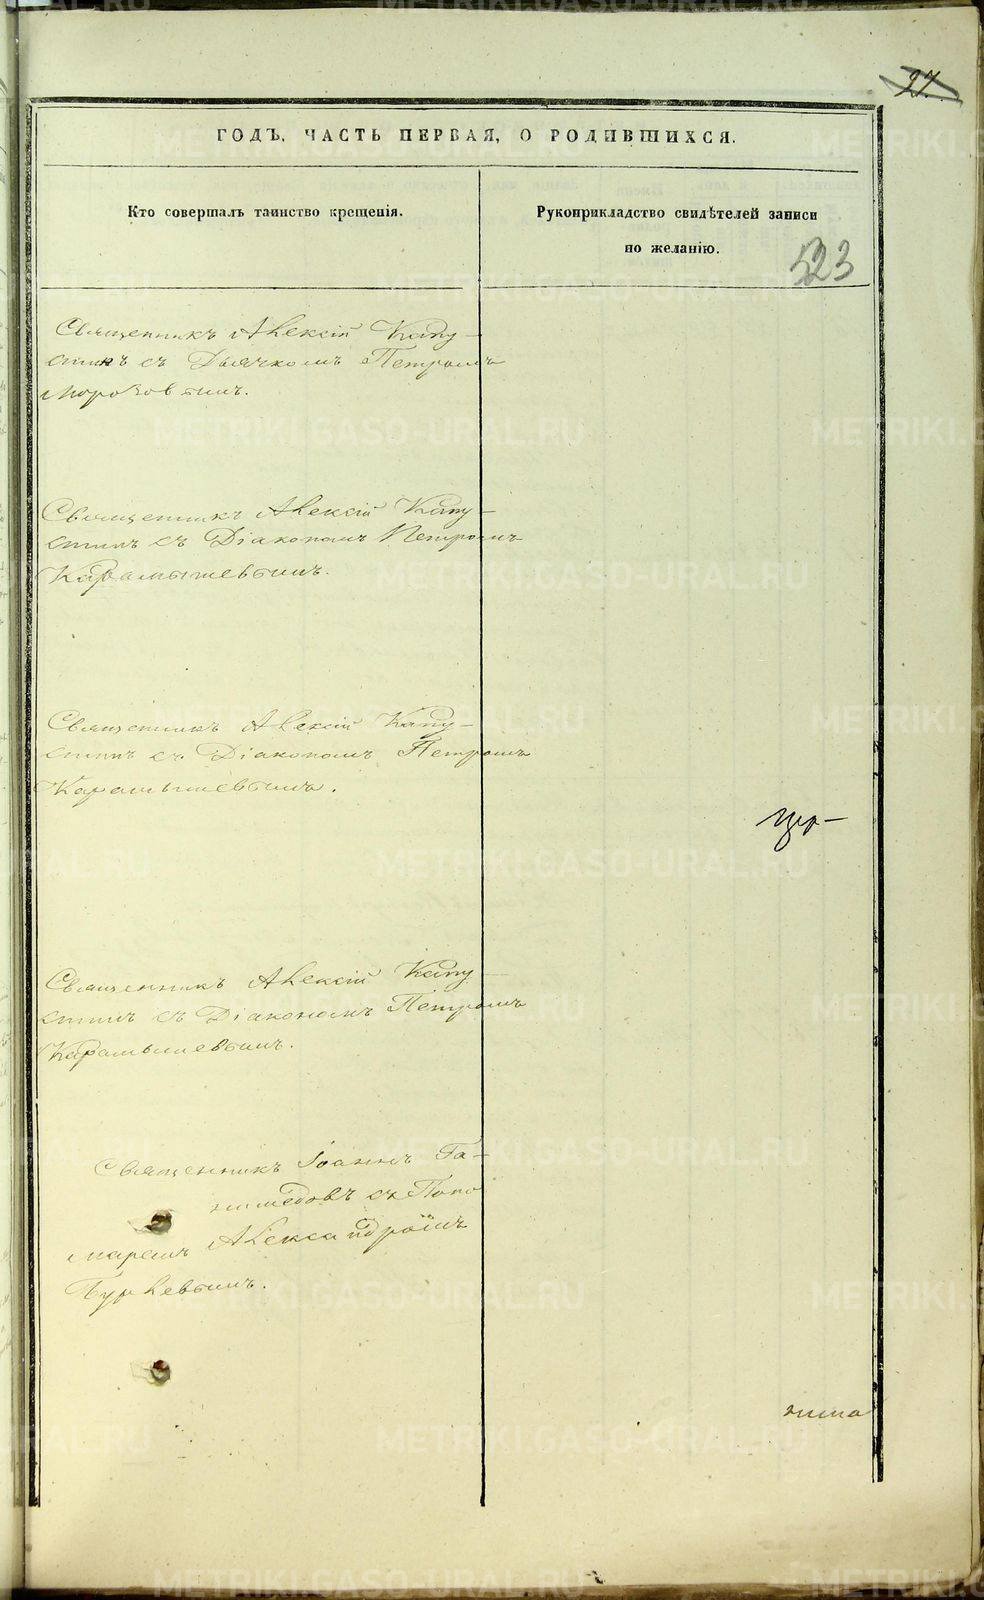 27
ГОДЪ, ЧАСТЬ ПЕРВАЯ, О РОДИВШИХСЯ.
Кто совершалъ таинство крещенія.
Рукоприкладство свидѣтелей записи
по желанію.
523
Священникъ Алексій Капу-
стинъ съ Дьячкомъ Петромъ
Морозовымъ.
Священникъ Алексій Капу-
стинъ съ Діакономъ Петромъ
Карамышевымъ.
Священникъ Алексій Капу-
стинъ съ Діакономъ Петромъ
Карамышевымъ.
Священникъ Алексій Капу-
стинъ съ Діакономъ Петромъ
Карамышевымъ.
Священникъ Іоаннъ Га-
нимедовъ съ Поно
маремъ Александромъ
Бурлевымъ.
METRIKI.GASO-URAL.RU